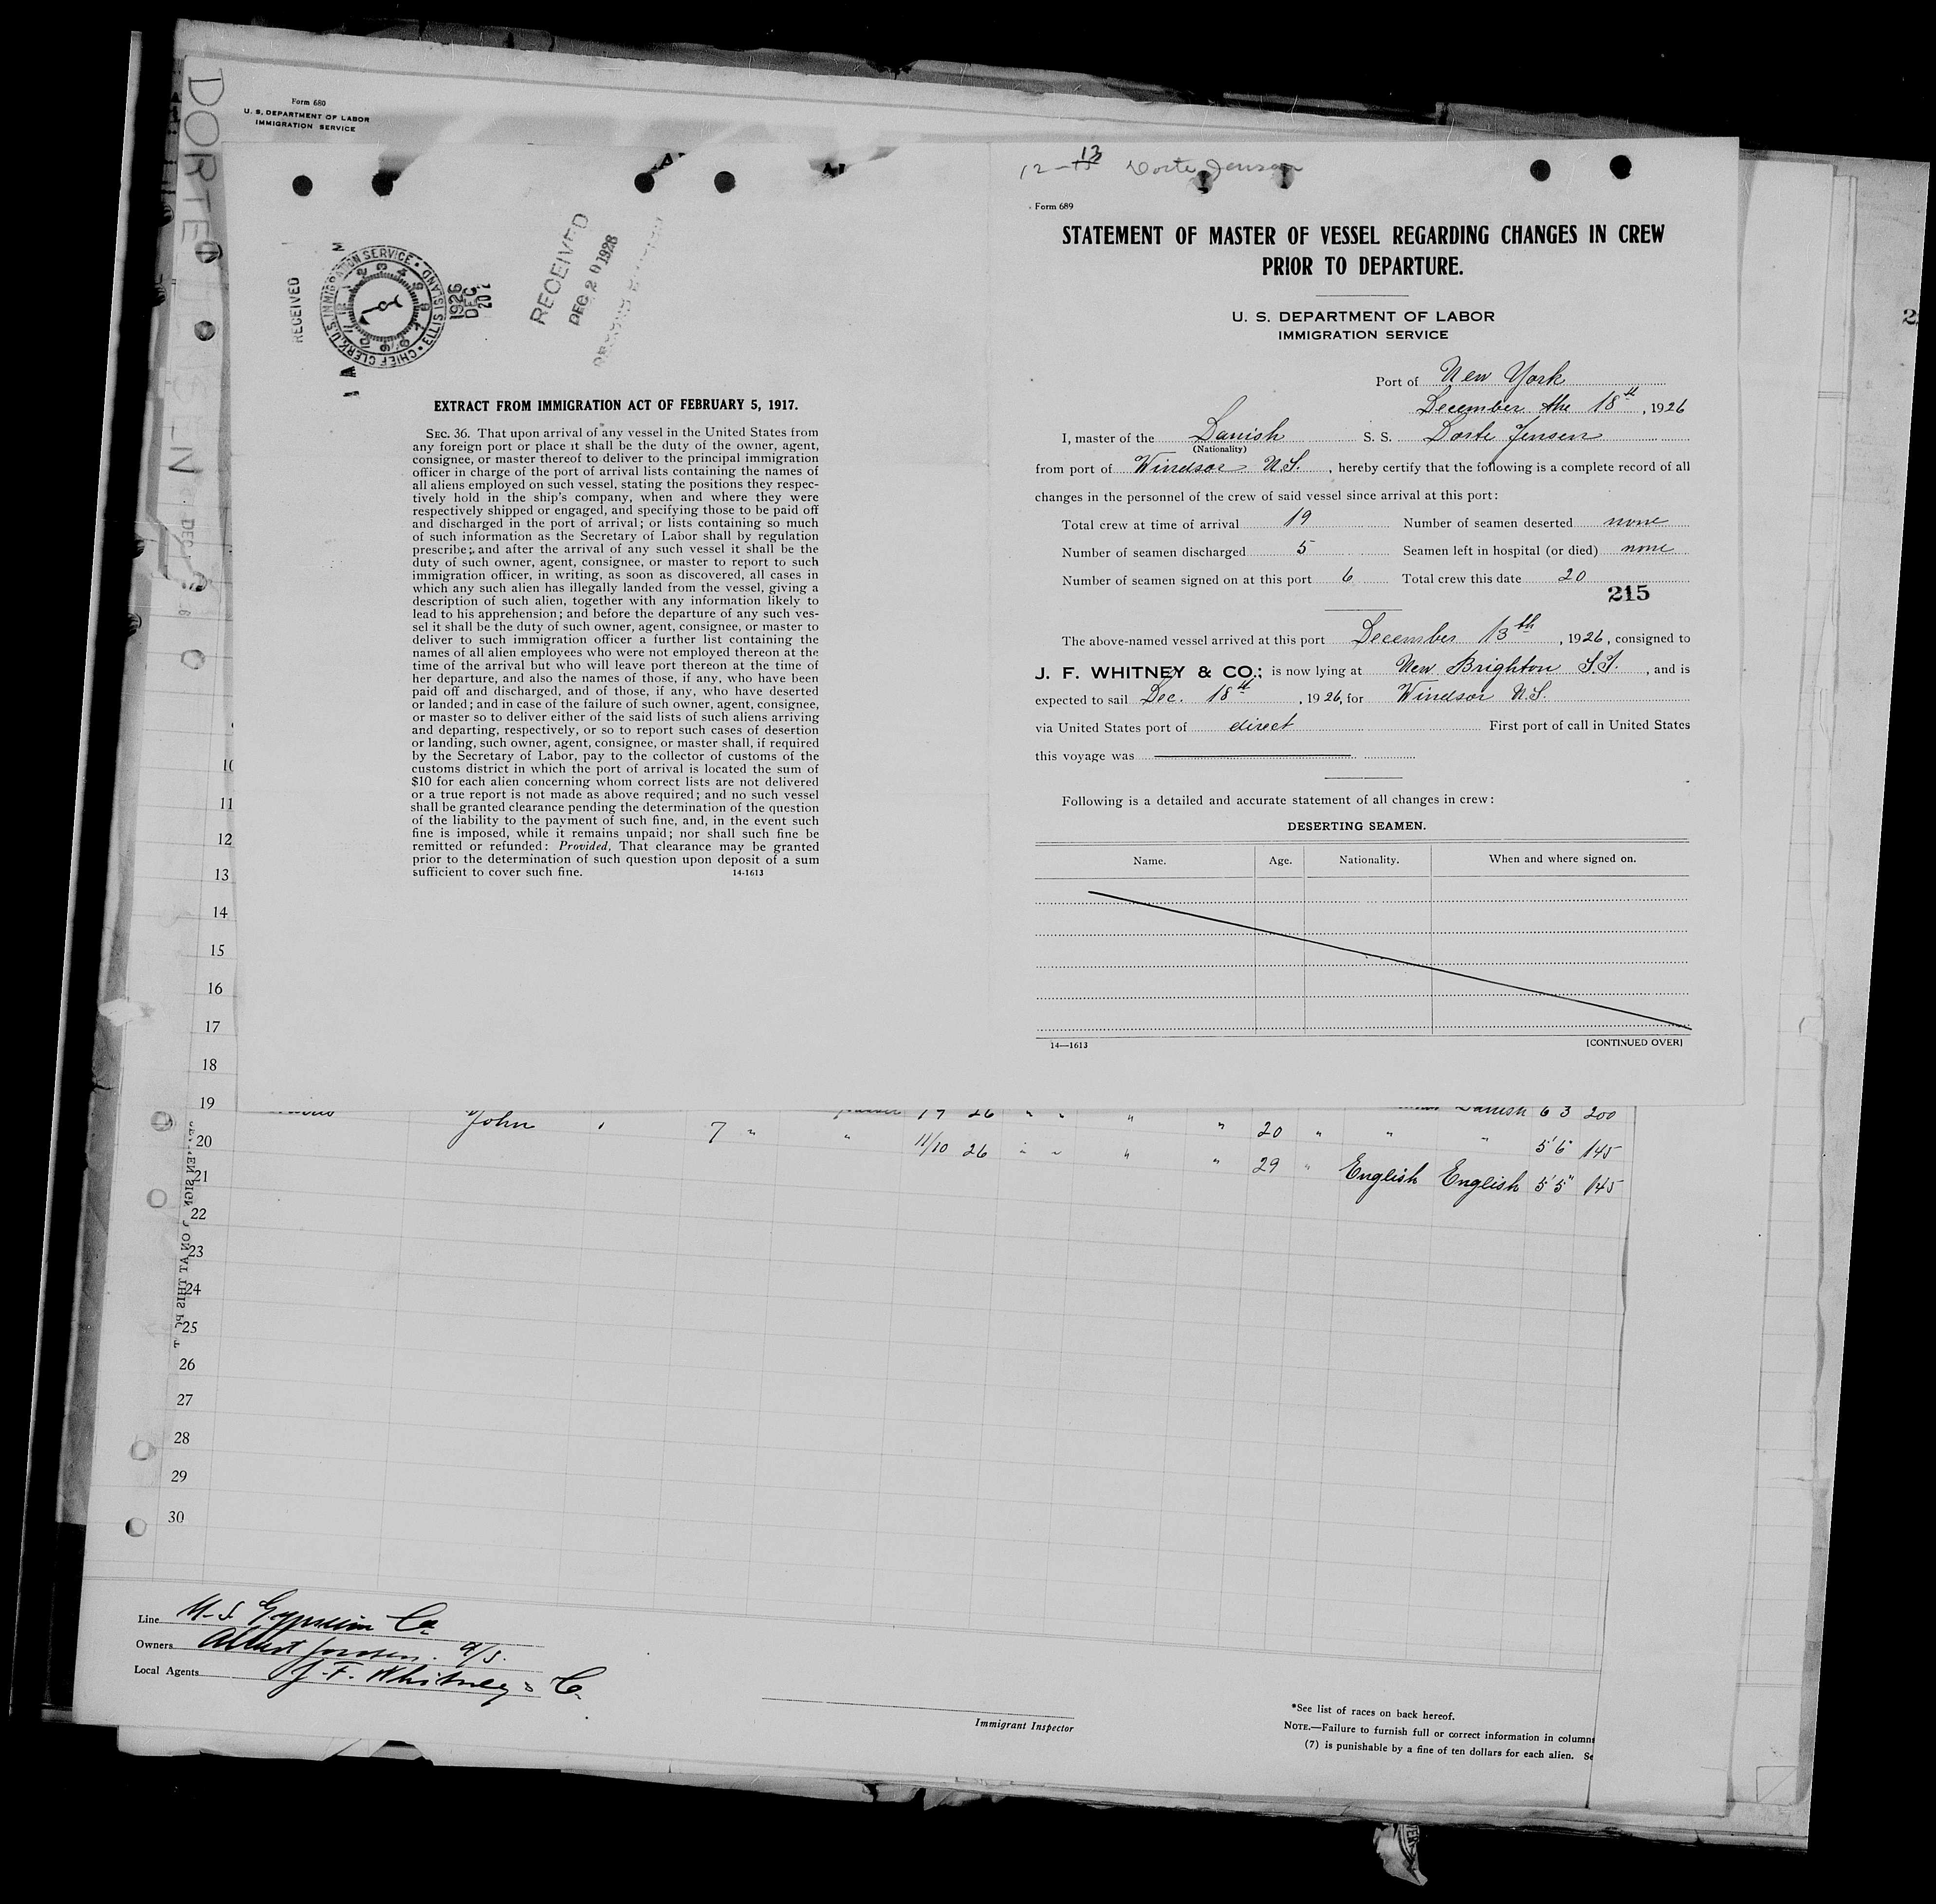 DORTE JENSEN
Form 680
U. S. DEPARTMENT OF LABOR
IMMIGRATION SERVICE
RECEIVED
U.S. IMMIGRATION SERVICE • ELLIS ISLAND • CHIEF CLERK
1926
DEC
20
RECEIVED
DEC 20 1926
EXTRACT FROM IMMIGRATION ACT OF FEBRUARY 5, 1917.
SEC. 36. That upon arrival of any vessel in the United States from
any foreign port or place it shall be the duty of the owner, agent,
consignee, or master thereof to deliver to the principal immigration
officer in charge of the port of arrival lists containing the names of
all aliens employed on such vessel, stating the positions they respec-
tively hold in the ship's company, when and where they were
respectively shipped or engaged, and specifying those to be paid off
and discharged in the port of arrival; or lists containing so much
of such information as the Secretary of Labor shall by regulation
prescribe; and after the arrival of any such vessel it shall be the
duty of such owner, agent, consignee, or master to report to such
immigration officer, in writing, as soon as discovered, all cases in
which any such alien has illegally landed from the vessel, giving a
description of such alien, together with any information likely to
lead to his apprehension; and before the departure of any such ves-
sel it shall be the duty of such owner, agent, consignee, or master to
deliver to such immigration officer a further list containing the
names of all alien employees who were not employed thereon at the
time of the arrival but who will leave port thereon at the time of
her departure, and also the names of those, if any, who have been
paid off and discharged, and of those, if any, who have deserted
or landed; and in case of the failure of such owner, agent, consignee,
or master so to deliver either of the said lists of such aliens arriving
and departing, respectively, or so to report such cases of desertion
or landing, such owner, agent, consignee, or master shall, if required
by the Secretary of Labor, pay to the collector of customs of the
customs district in which the port of arrival is located the sum of
$10 for each alien concerning whom correct lists are not delivered
or a true report is not made as above required; and no such vessel
shall be granted clearance pending the determination of the question
of the liability to the payment of such fine, and, in the event such
fine is imposed, while it remains unpaid; nor shall such fine be
remitted or refunded: Provided, That clearance may be granted
prior to the determination of such question upon deposit of a sum
sufficient to cover such fine. 14-1613
12-13 Dorte Jensen
Form 689
STATEMENT OF MASTER OF VESSEL REGARDING CHANGES IN CREW
PRIOR TO DEPARTURE.
U. S. DEPARTMENT OF LABOR
IMMIGRATION SERVICE
Port of New York
December the 18th, 1926
I, master of the Danish S. S. Dorte Jensen
(Nationality)
from port of Windsor N.S., hereby certify that the following is a complete record of all
changes in the personnel of the crew of said vessel since arrival at this port:
Total crew at time of arrival 19 Number of seamen deserted none
Number of seamen discharged 5 Seamen left in hospital (or died) none
Number of seamen signed on at this port 6 Total crew this date 20
215
The above-named vessel arrived at this port December 13th, 1926, consigned to
J. F. WHITNEY & CO.; is now lying at New Brighton S.I., and is
expected to sail Dec. 18th, 1926, for Windsor N.S.
via United States port of direct First port of call in United States
this voyage was
Following is a detailed and accurate statement of all changes in crew:
DESERTING SEAMEN.
Name. Age. Nationality. When and where signed on.
14—1613 [CONTINUED OVER]
10
11
12
13
14
15
16
17
18
19
20
21
22
23
24
25
26
27
28
29
30
Danish 6 3 200
John 7 " " 20 " " " 5'6" 145
11/10 26 " " " " 29 " English English 5'5" 145
Line U.S. Gypsum Co
Owners Albert Jensen. A/S.
Local Agents J. F. Whitney & Co.
Immigrant Inspector
*See list of races on back hereof.
NOTE.—Failure to furnish full or correct information in columns
(7) is punishable by a fine of ten dollars for each alien. Se